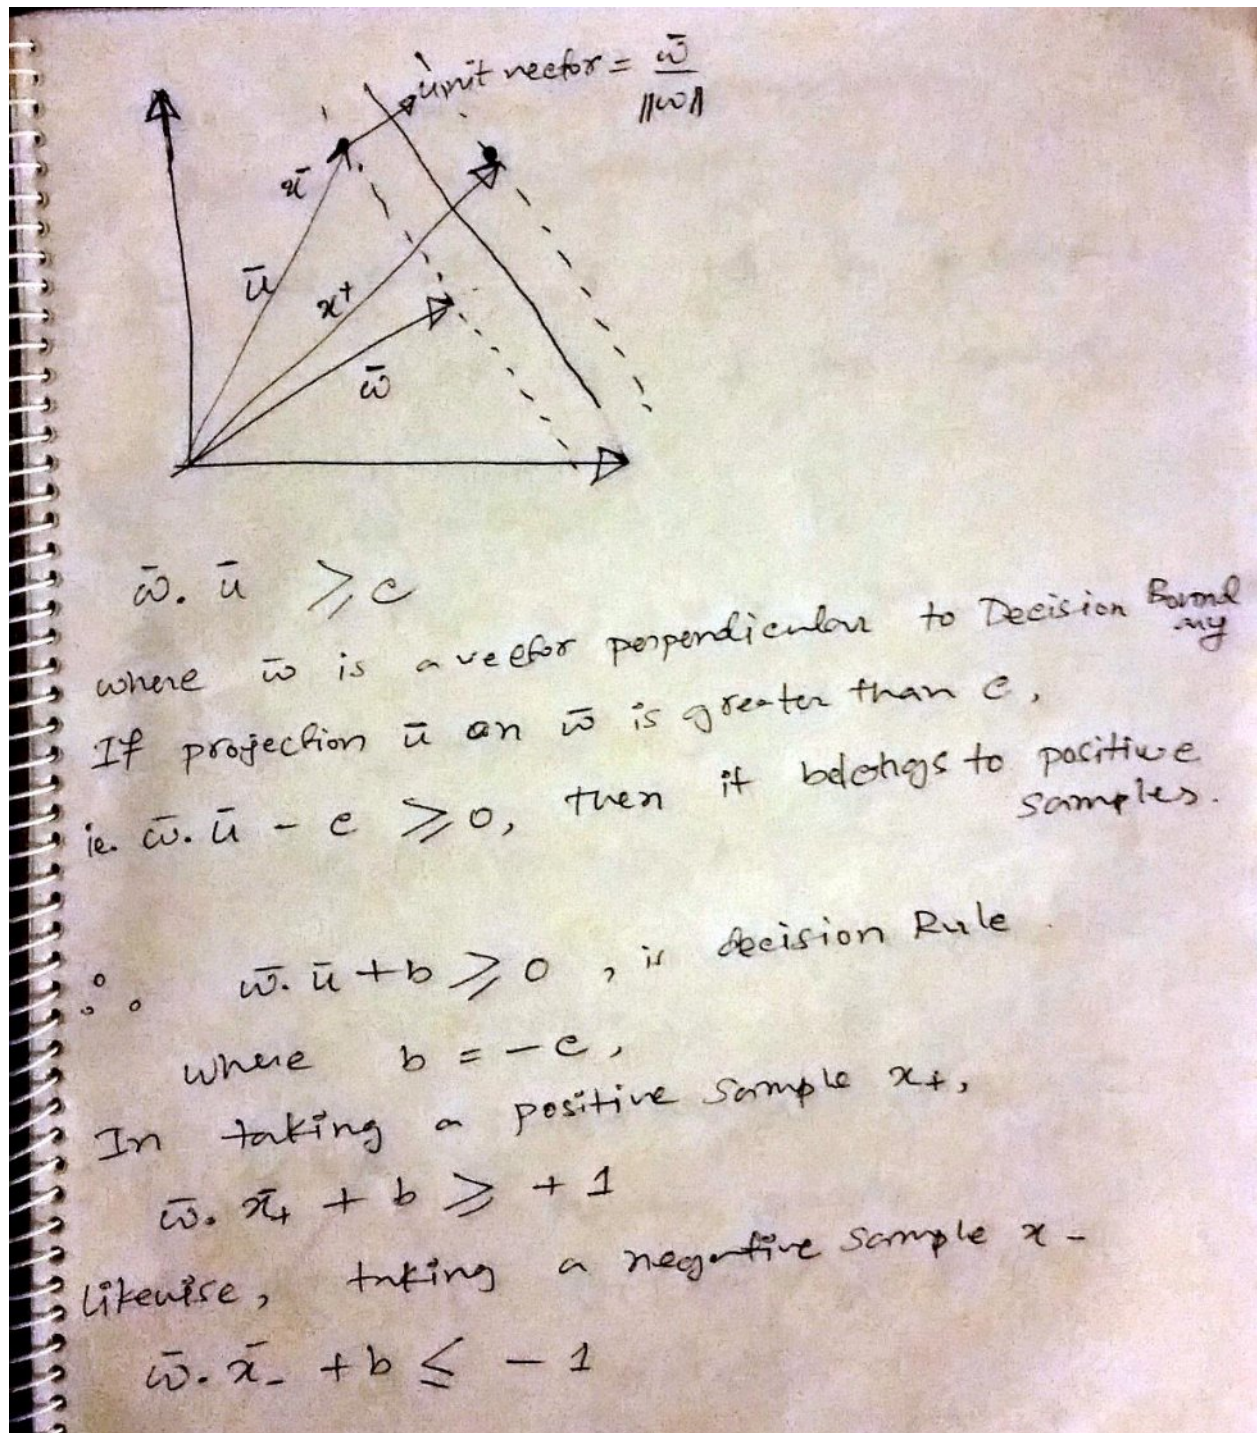 unit vector = w̄ / ||w||
x̄
ū
x+
w̄
w̄. ū ≥ c
where w̄ is a vector perpendicular to Decision Boundary
If projection ū on w̄ is greater than c,
ie. w̄. ū - c ≥ 0, then it belongs to positive
samples.
∴ w̄. ū + b ≥ 0, is decision Rule
where b = - c,
In taking a positive sample x+,
w̄. x̄+ + b ≥ + 1
likewise, taking a negative sample x-
w̄. x̄- + b ≤ - 1